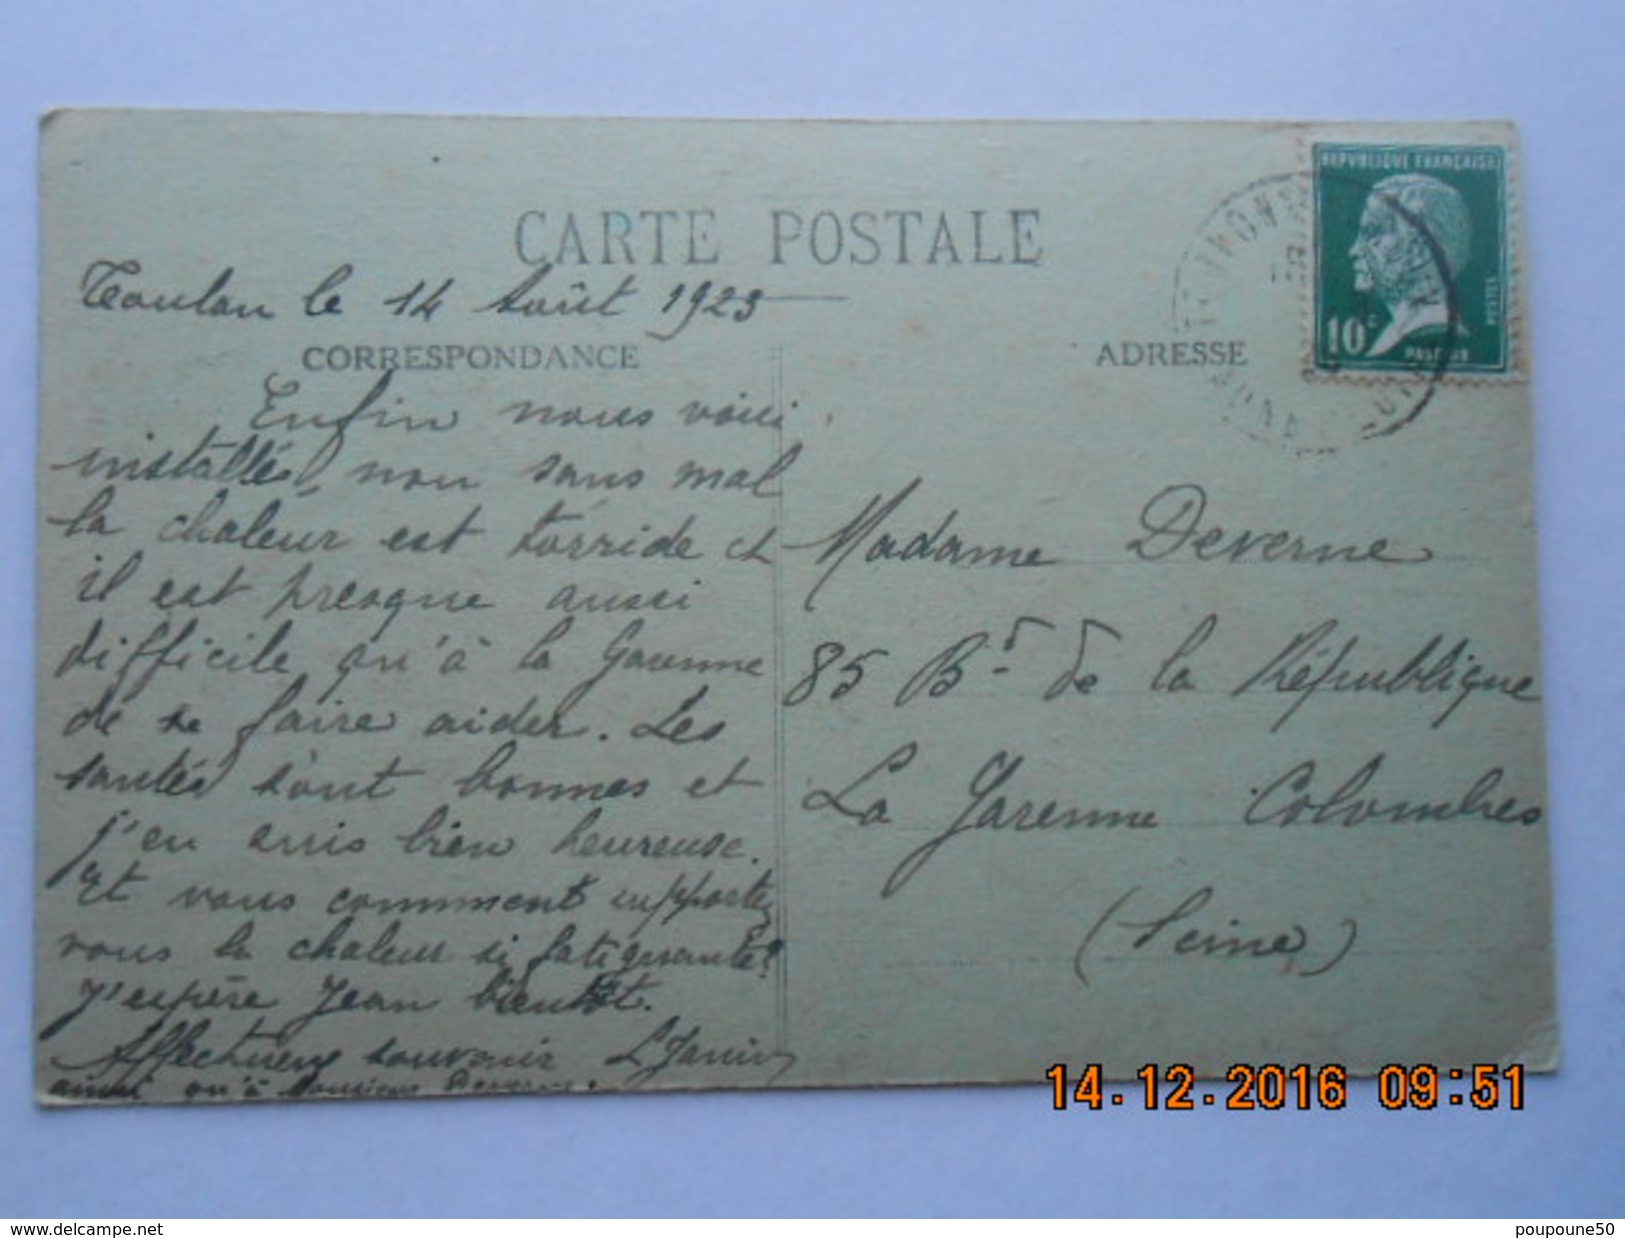 CARTE POSTALE
Toulon le 14 Août 1923
CORRESPONDANCE
Enfin nous voici
installés, non sans mal
la chaleur est torride et
il est presque aussi
difficile qu'à la Garenne
de se faire aider. Les
santés sont bonnes et
j'en suis bien heureuse.
Et vous comment supportez
vous la chaleur si fatiguante?
J'espère Jean bientôt.
Affectueux souvenir
ainsi qu'à Monsieur Deverne.
ADRESSE
REPUBLIQUE FRANÇAISE
POSTES
10c
PASTEUR
Madame Deverne
85 Bd de la République
La Garenne Colombes
(Seine)
14.12.2016 09:51
www.delcampe.net
poupoune50